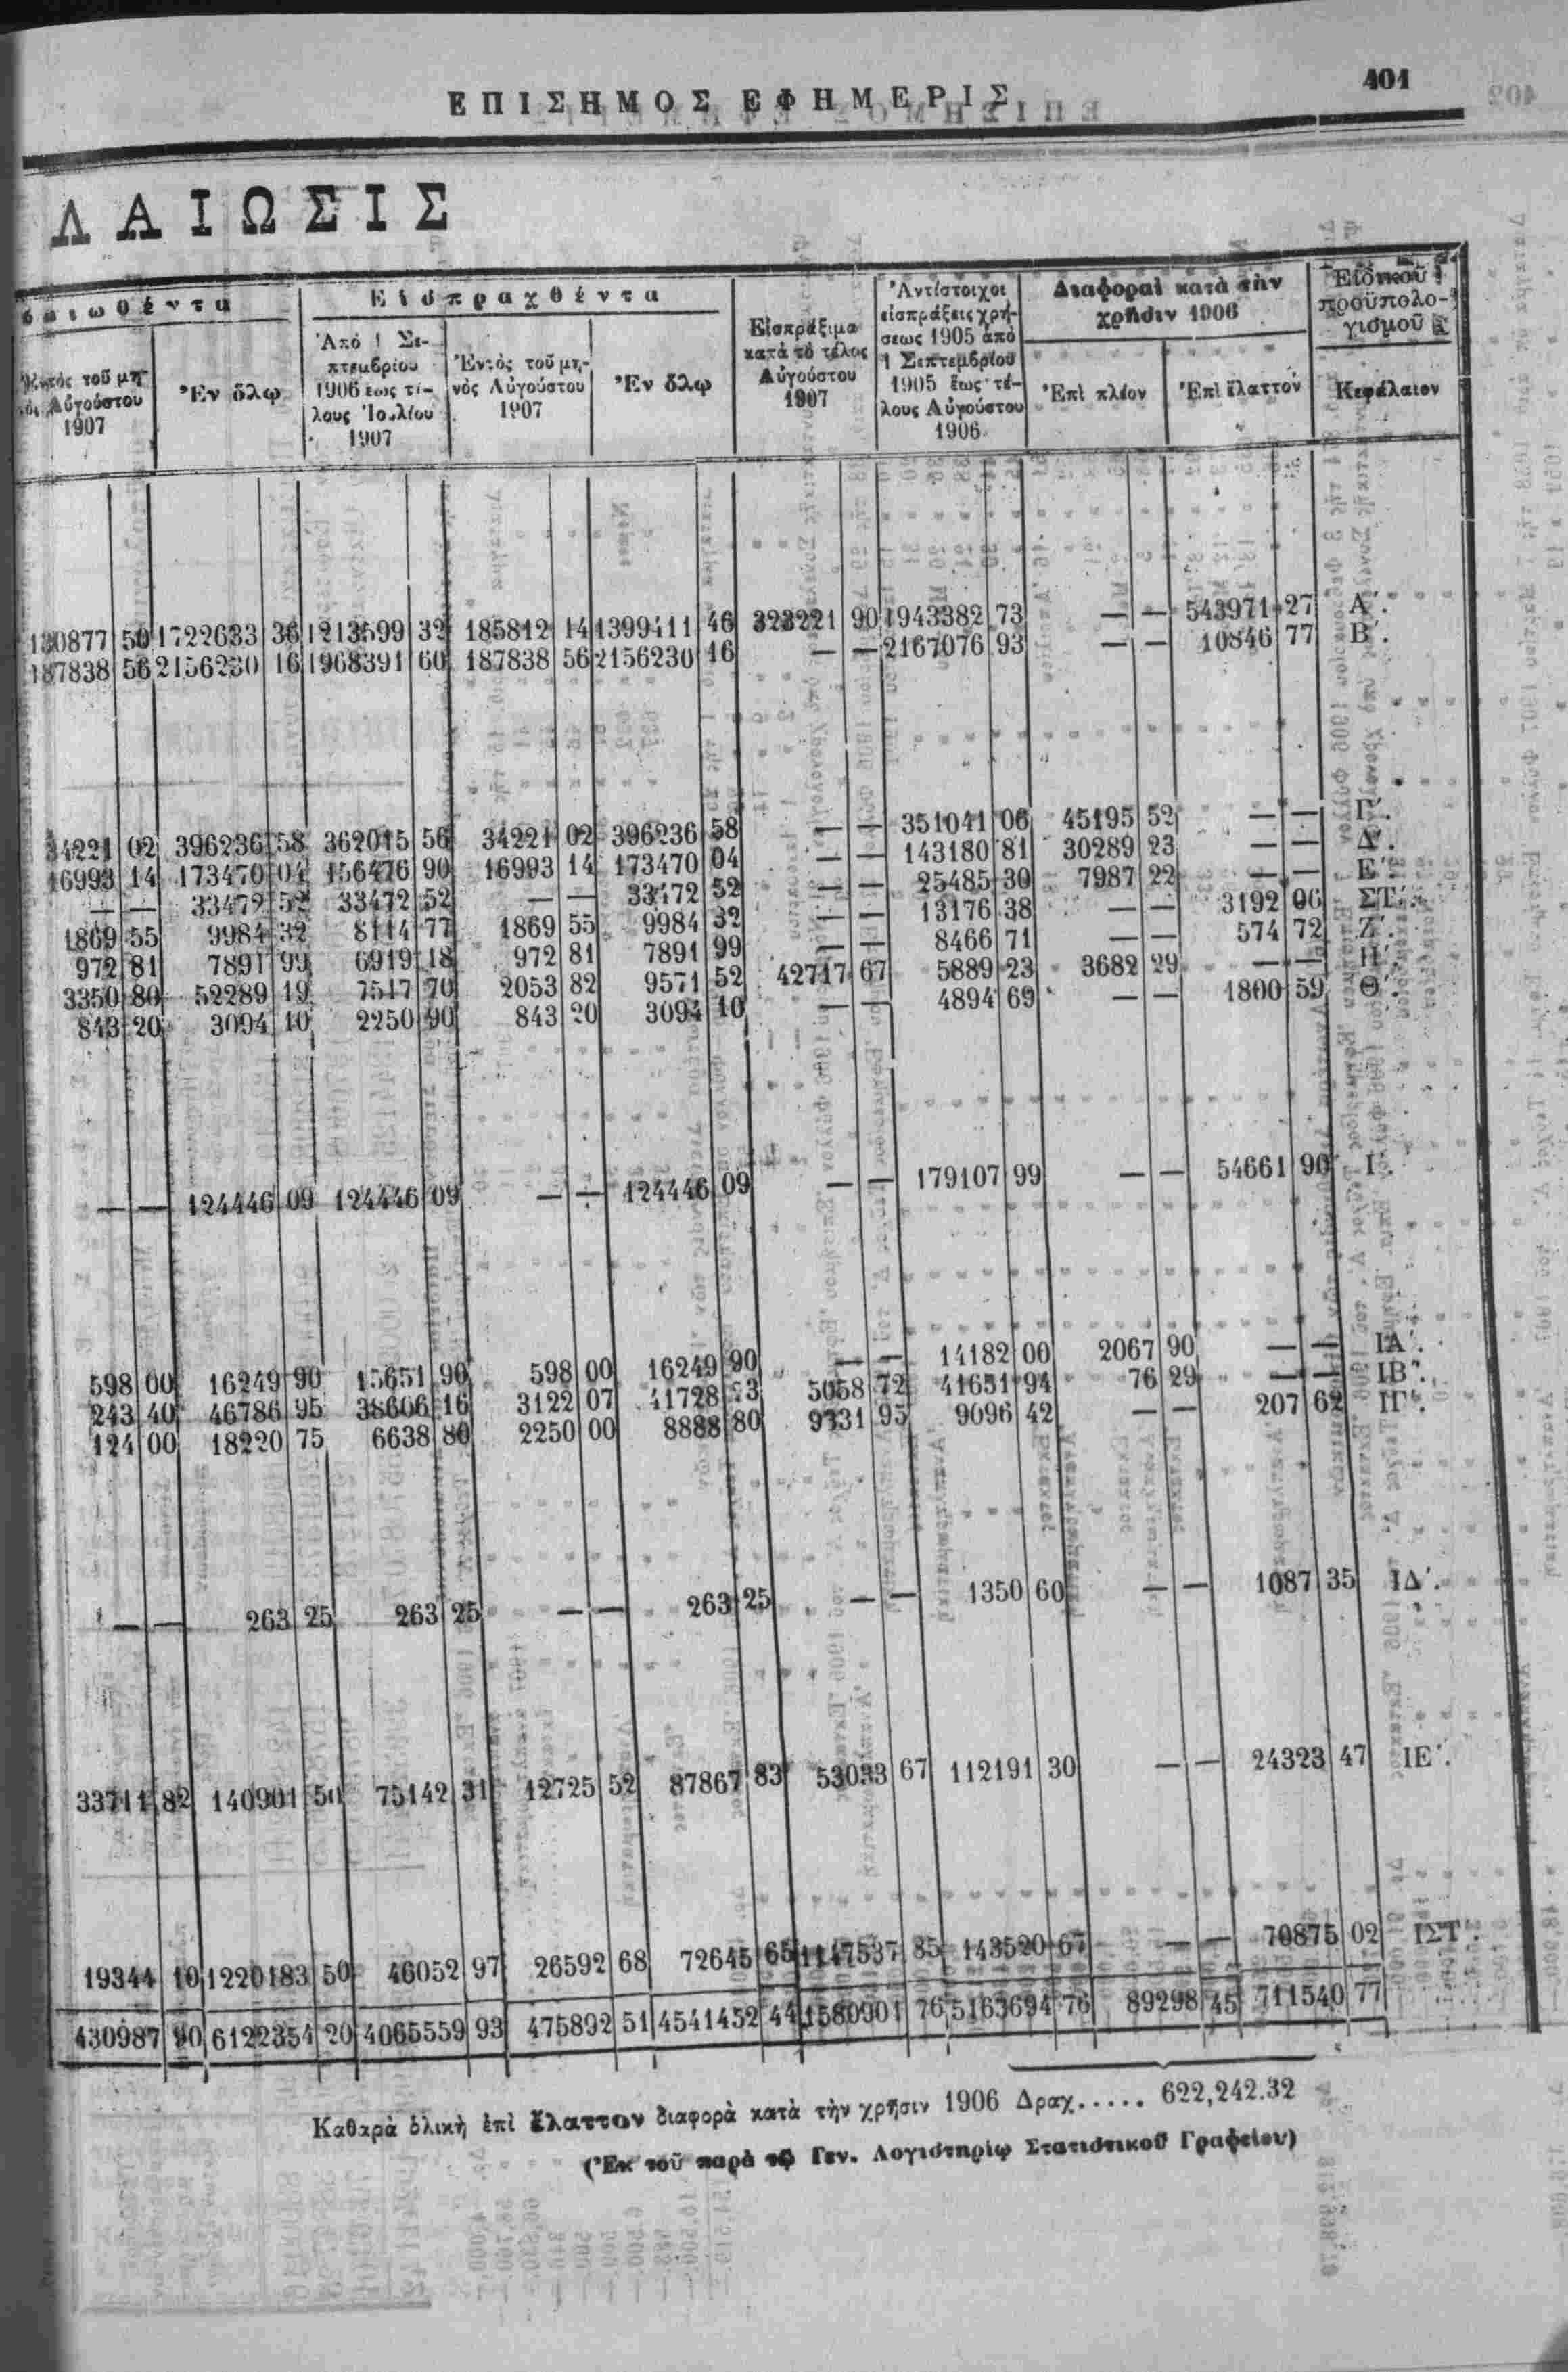 ΕΠΙΣΗΜΟΣ ΕΦΗΜΕΡΙΣ 401
ΛΑΙΩΣΙΣ
βαιωθέντα Εἰσπραχθέντα Εἰσπράξιμα κατὰ τὸ τέλος Αὐγούστου 1907 Ἀντίστοιχοι εἰσπράξεις χρήσεως 1905 ἀπὸ 1 Σεπτεμβρίου 1905 ἕως τέλους Αὐγούστου 1906 Διαφοραὶ κατὰ τὴν χρῆσιν 1906 Εἰδικοῦ προϋπολογισμοῦ
Ἐντὸς τοῦ μηνὸς Αὐγούστου 1907 Ἐν ὅλῳ Ἀπὸ 1 Σεπτεμβρίου 1906 ἕως τέλους Ἰουλίου 1907 Ἐντὸς τοῦ μηνὸς Αὐγούστου 1907 Ἐν ὅλῳ Ἐπὶ πλέον Ἐπὶ ἔλαττον Κεφάλαιον
130877 50 1722633 36 1213599 32 185812 14 1399411 46 323221 90 1943382 73 — — 543971 27 Α΄.
187838 56 2156230 16 1968391 60 187838 56 2156230 16 — — 2167076 93 — — 10846 77 Β΄.
34221 02 396236 58 362015 56 34221 02 396236 58 — — 351041 06 45195 52 — — Γ΄.
16993 14 173470 04 156476 90 16993 14 173470 04 — — 143180 81 30289 23 — — Δ΄.
— — 33472 52 33472 52 — — 33472 52 — — 25485 30 7987 22 — — Ε΄.
1869 55 9984 32 8114 77 1869 55 9984 32 — — 13176 38 — — 3192 06 ΣΤ΄.
972 81 7891 99 6919 18 972 81 7891 99 — — 8466 71 — — 574 72 Ζ΄.
3350 80 52289 19 7517 70 2053 82 9571 52 42717 67 5889 23 3682 29 — — Η΄.
843 20 3094 10 2250 90 843 20 3094 10 — — 4894 69 — — 1800 59 Θ΄.
— — 124446 09 124446 09 — — 124446 09 — — 179107 99 — — 54661 90 Ι΄.
598 00 16249 90 15651 90 598 00 16249 90 — — 14182 00 2067 90 — — ΙΑ΄.
243 40 46786 95 38606 16 3122 07 41728 23 5058 72 41651 94 76 29 — — ΙΒ΄.
124 00 18220 75 6638 80 2250 00 8888 80 9331 95 9096 42 — — 207 62 ΙΓ΄.
— — 263 25 263 25 — — 263 25 — — 1350 60 — — 1087 35 ΙΔ΄.
33711 82 140901 50 75142 31 12725 52 87867 83 53033 67 112191 30 — — 24323 47 ΙΕ΄.
19344 10 1220183 50 46052 97 26592 68 72645 65 1147537 85 143520 67 — — 70875 02 ΙΣΤ΄.
430987 90 6122354 20 4065559 93 475892 51 4541452 44 1580901 76 5163694 76 89298 45 711540 77
Καθαρὰ ὁλικὴ ἐπὶ ἔλαττον διαφορὰ κατὰ τὴν χρῆσιν 1906 Δραχ..... 622,242.32
(Ἐκ τοῦ παρὰ τῷ Γεν. Λογιστηρίῳ Στατιστικοῦ Γραφείου)